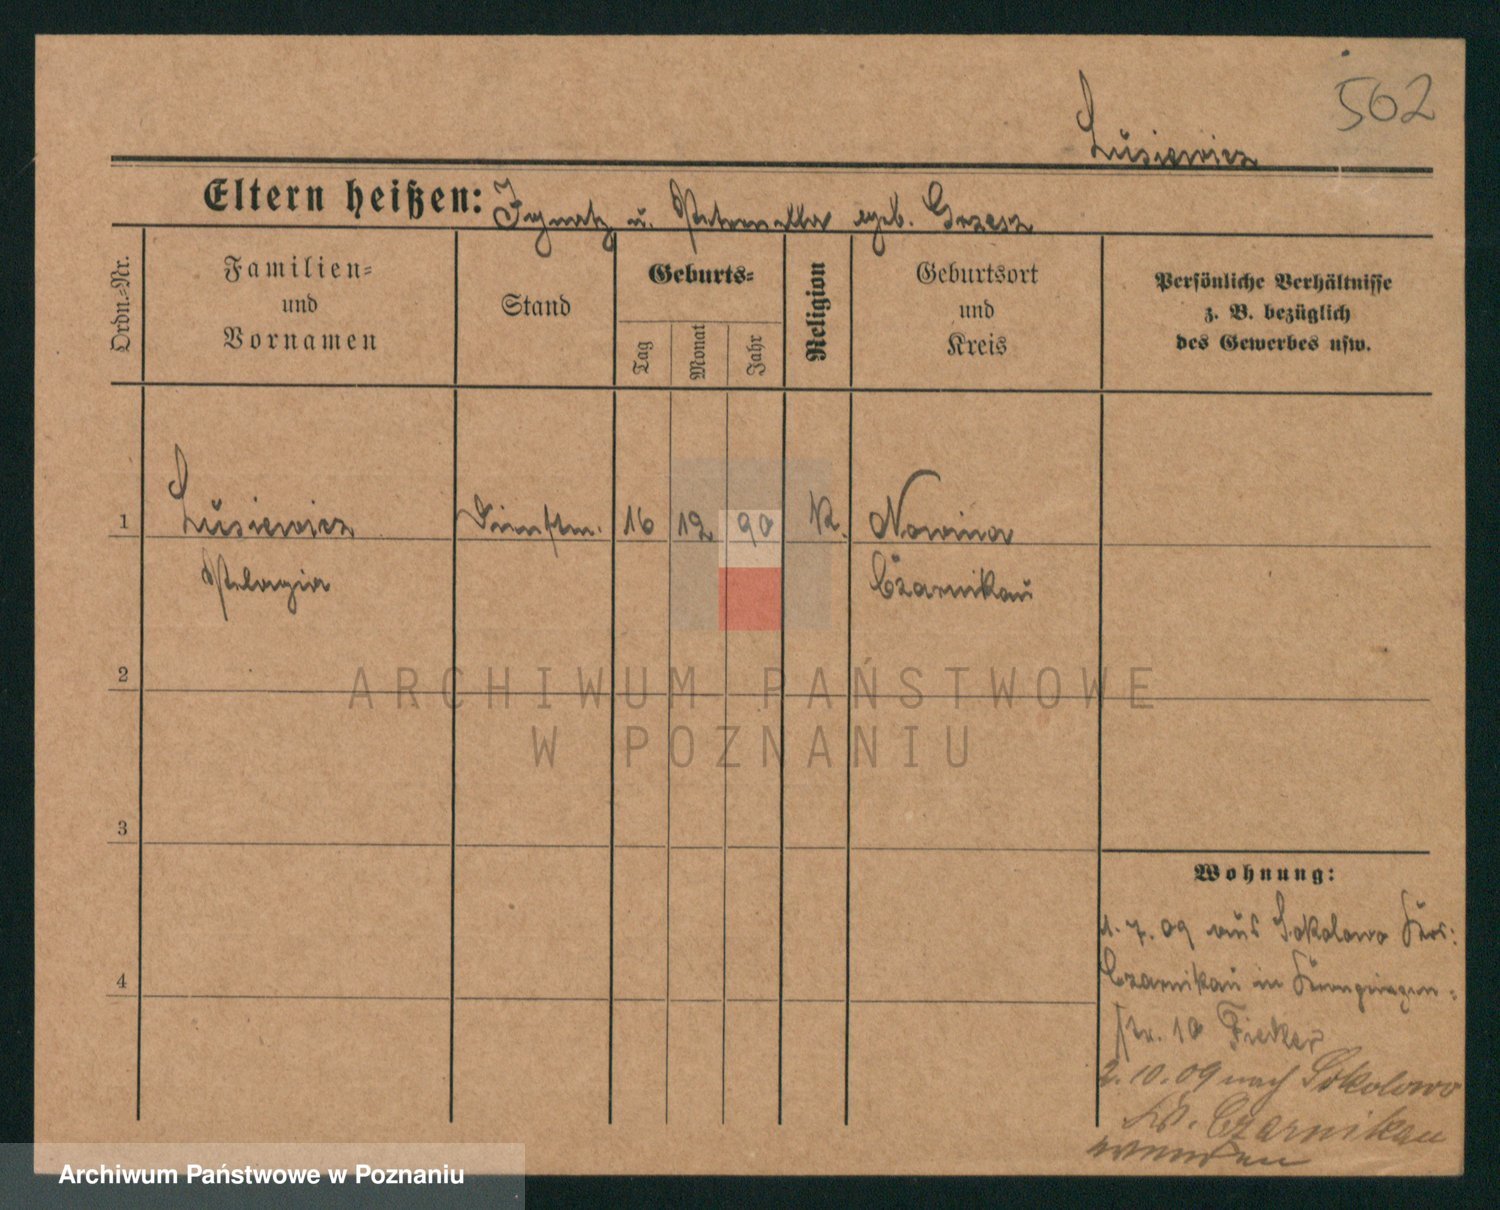 502
Lusiewicz
Eltern heißen: Ignatz u. Petronella geb. Grzesz
Ordn.-Nr.
Familien-
und
Vornamen
Stand
Geburts-
Tag
Monat
Jahr
Religion
Geburtsort
und
Kreis
Persönliche Verhältnisse
z. B. bezüglich
des Gewerbes usw.
1 Lusiewicz Dienstm. 16 12 90 K. Nowina
Pelagia Czarnikau
2
ARCHIWUM PAŃSTWOWE
W POZNANIU
3
4
Wohnung:
1. 7. 09 aus Sokolowo Krs:
Czarnikau in Kronprinzen-
str. 10 Fiedler
2. 10. 09 nach Sokolowo
Czarnikau
wenden
Archiwum Państwowe w Poznaniu